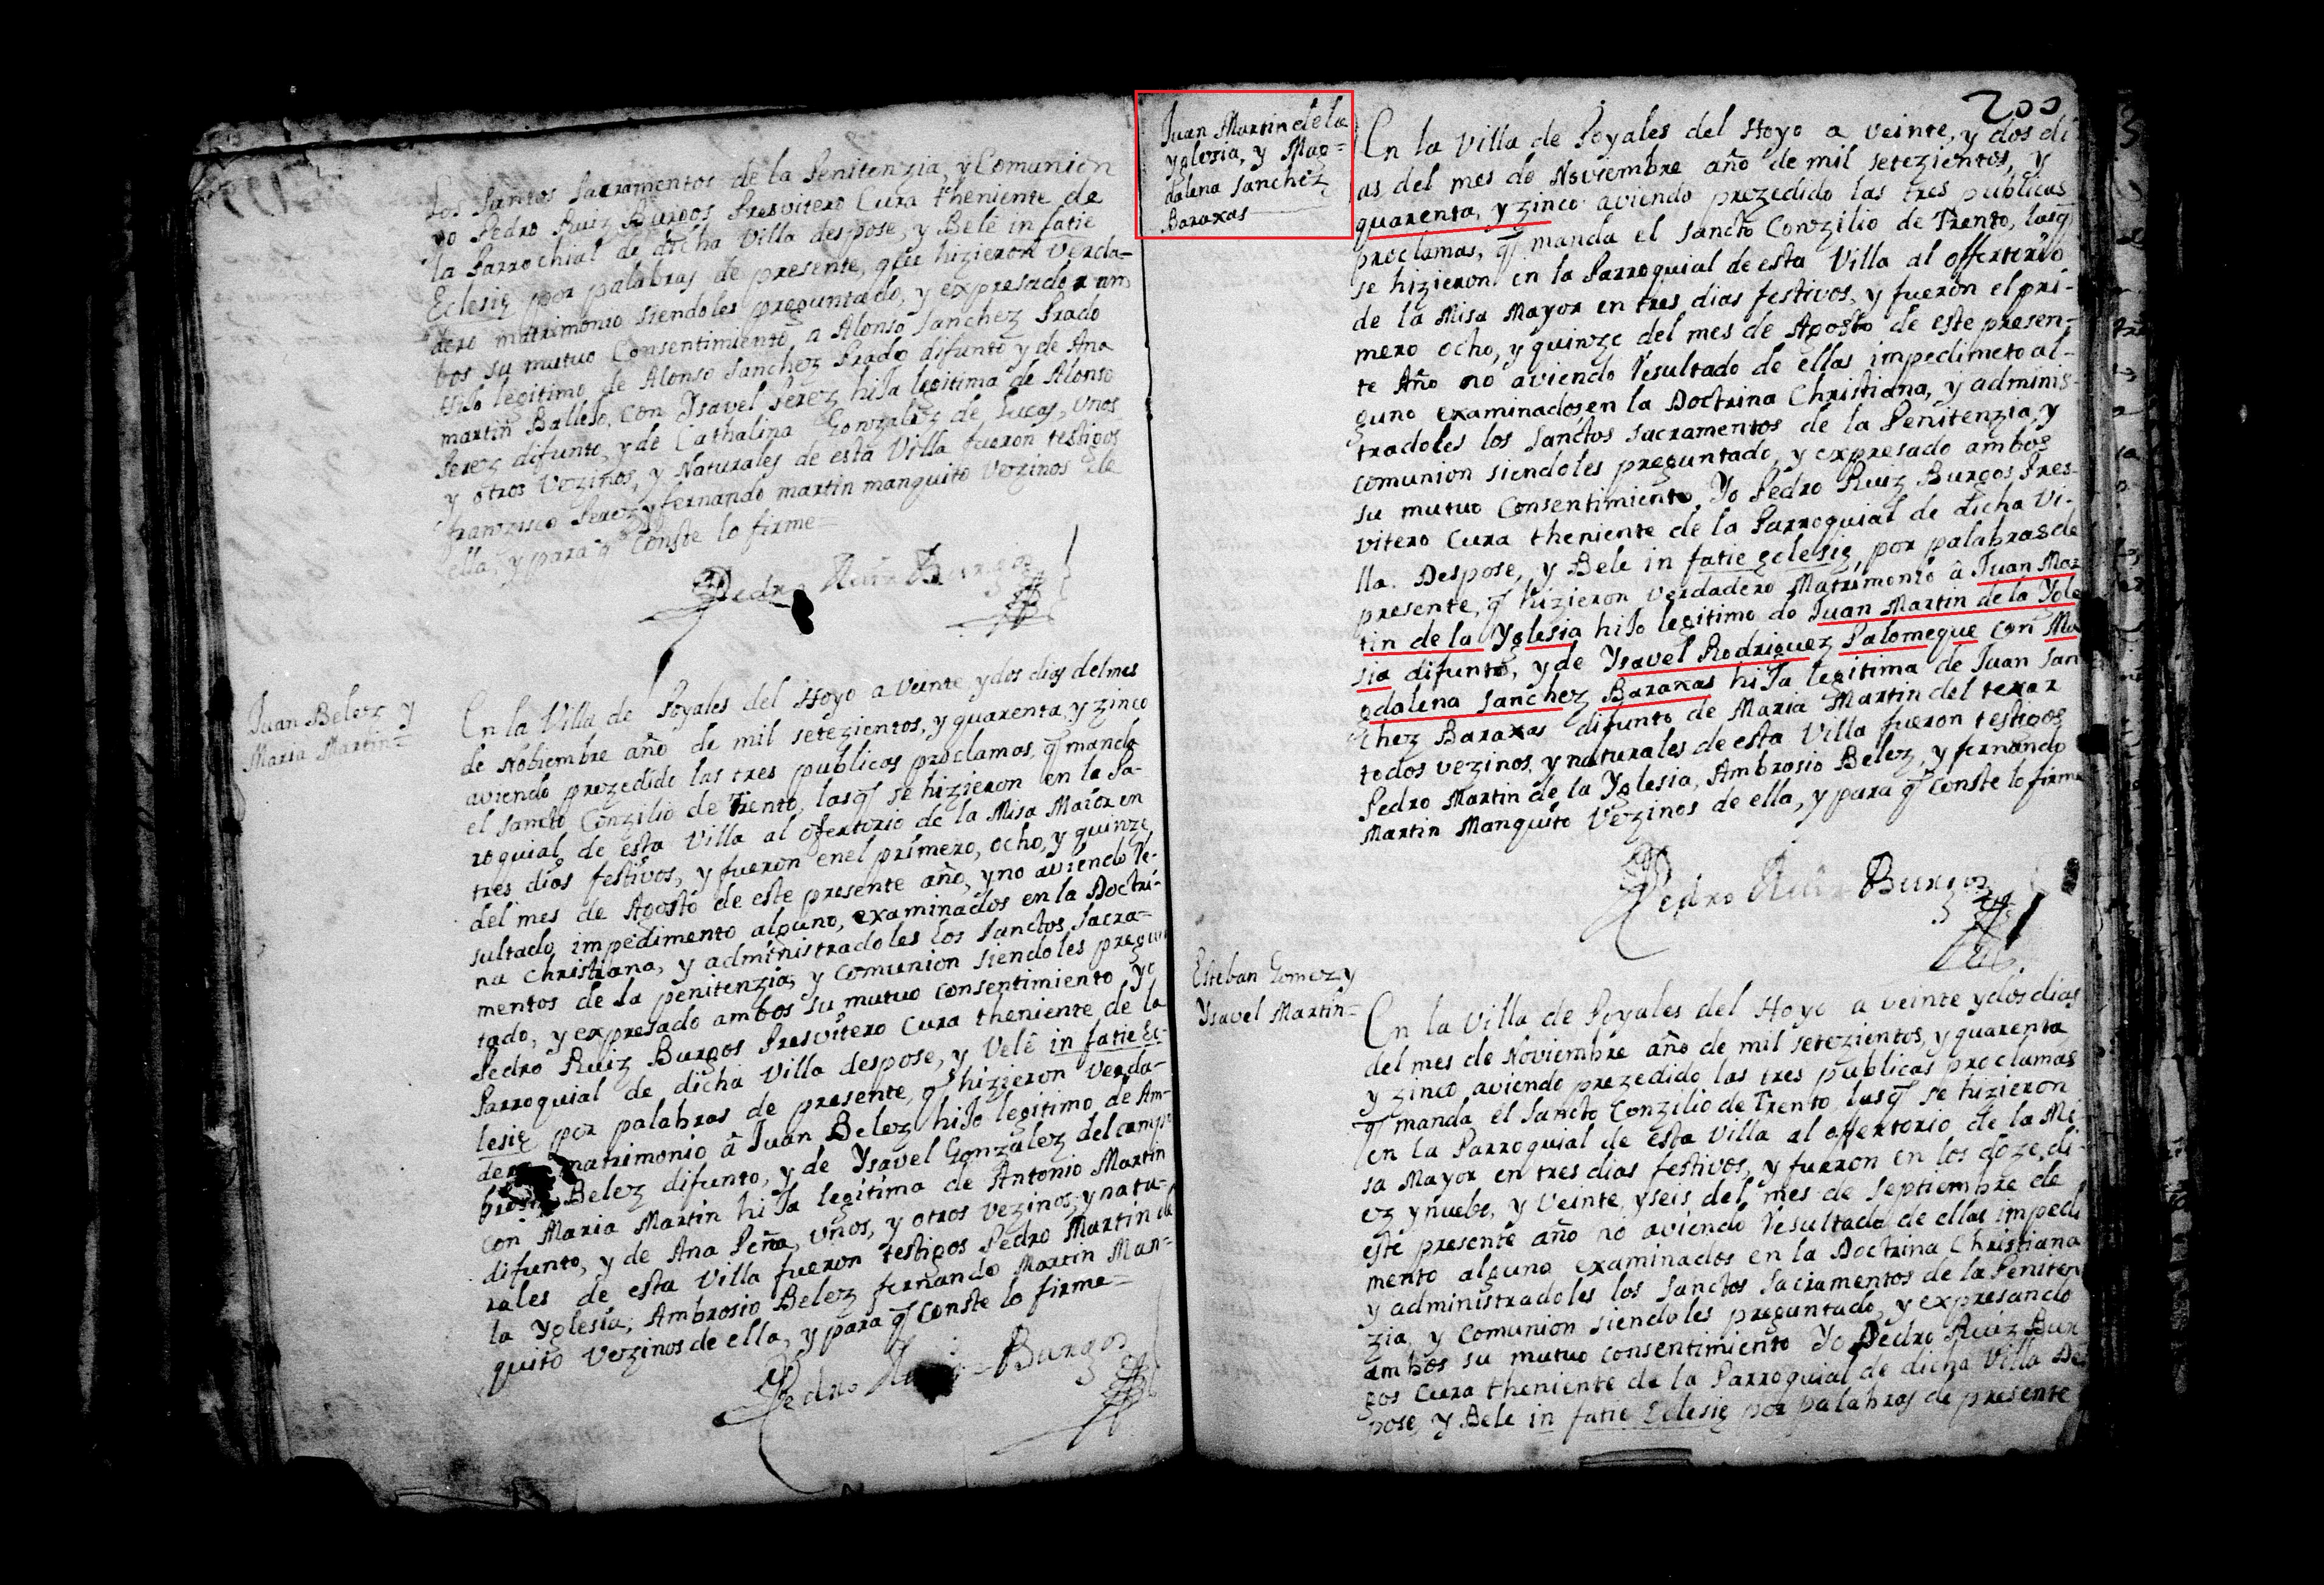 los Santos Sacramentos de la Penitenzia, y Comunion
yo Pedro Ruiz Burgos Presvitero Cura theniente de
la Parrochial de dicha Villa despose, y Belè in fatie
Eclesię por palabras de presente, que hizieron Verda-
dero matrimonio siendoles preguntado, y expresado am
bos su mutuo Consentimiento, a Alonso Sanchez Prado
Hijo legitimo de Alonso Sanchez Prado difunto y de Ana
martin Ballejo, con Ysavel Perez hija legitima de Alonso
Perez difunto, y de Cathalina Gonzalez de Lucas, Unos
y otros Vezinos, y Naturales de esta Villa fueron testigos
franzisco Perez y fernando martin manquito Vezinos de
ella, y para q̃ Conste lo firme
Pedro Ruiz Burgos
Juan Belez y
Maria Martin=
En la Villa de Poyales del Hoyo a Veinte y dos dias del mes
de Nobiembre año de mil setezientos, y quarenta, y zinco
aviendo prezedido las tres publicas proclamas, q̃ manda
el Sancto Conzilio de Trento, lasq̃ se hizieron en la Pa-
roquial de esta Villa al ofertorio de la Misa Maior en
tres dias festivos, y fueron enel primero, ocho, y quinze
del mes de Agosto de este presente año, y no aviendo Re-
sultado impedimento alguno, examinados en la Doctri-
na Christiana, y administradoles los Sanctos Sacra-
mentos de la penitenzia, y Comunion siendoles pregun
tado, y expresado ambos su mutuo Consentimiento Yo
Pedro Ruiz Burgos Presvitero Cura theniente de la
Parroquial de dicha Villa despose, y Velê in fatie Ec-
lesię por palabras de presente, q̃ hizieron Verda-
dero matrimonio â Juan Belez hijo legitimo de Am-
brosio Belez difunto, y de Ysavel Gonzalez del camp
con Maria Martin hija legitima de Antonio Martin
difunto, y de Ana Peña, Unos, y otros vezinos, y natu-
rales de esta Villa fueron testigos Pedro Martin de
la Yglesia, Ambrosio Belez fernando Martin Man-
quito Vezinos de ella, y para q̃ Conste lo firme=
Pedro Ruiz Burgos
200
Juan Martin de la
Yglesia, y Mag=
dalena Sanchez
Baraxas
En la Villa de Poyales del Hoyo a Veinte, y dos di
as del mes de Noviembre año de mil setezientos, y
quarenta, y zinco aviendo prezedido las tres publicas
proclamas, q̃ manda el Sancto Conzilio de Trento, lasq̃
se hizieron en la Parroquial de esta Villa al offertorio
de la Misa Mayor en tres dias festivos, y fueron el pri-
mero ocho, y quinze del mes de Agosto de este presen-
te Año no aviendo Resultado de ellas impedimeto al-
guno examinados en la Doctrina Christiana, y adminis-
tradoles los Sanctos Sacramentos de la Penitenzia, y
comunion siendoles preguntado, y expresado ambos
su mutuo Consentimiento, Yo Pedro Ruiz Burgos Pres-
vitero Cura theniente de la Parroquial de dicha Vi-
lla. Despose, y Bele in fatie eclesię, por palabras de
presente, q̃ hizieron verdadero Matrimonio â Juan Mar
tin de la Yglesia hijo legitimo do Juan Martin de la Ygle
sia difunto, y de Ysavel Rodriguez Palomeque con Ma
gdalena Sanchez Baraxas hija legitima de Juan San
chez Baraxas difunto de Maria Martin del texar
todos vezinos, y naturales de esta Villa fueron testigos
Pedro Martin de la Yglesia, Ambrosio Belez, y fernando
Martin Manquito Vezinos de ella, y para q̃ Conste lo firme
Pedro Ruiz Burgos
Esteban Gomez y
Ysavel Martin=
En la Villa de Poyales del Hoyo a veinte y dos dias
del mes de Noviembre año de mil setezientos, y quarenta
y zinco aviendo prezedido las tres publicas proclamas
q̃ manda el Sancto Conzilio de Trento, lasq̃ se hizieron
en la Parroquial de esta Villa al offertorio de la Mi
sa Mayor en tres dias festivos, y fueron en los doze, di-
ez y nuebe, y Veinte, y seis del mes de Septiembre de
este presente año no aviendo Resultado de ellas impedi
mento alguno examinados en la Doctrina Christiana
y administradoles los Sanctos Sacramentos de la Peniten
zia, y Comunion siendoles preguntado, y expresando
ambos su mutuo consentimiento Yo Pedro Ruiz Bur
gos Cura theniente de la Parroquial de dicha Villa Des
pose, y Bele in fatie Eclesię por palabras de presente